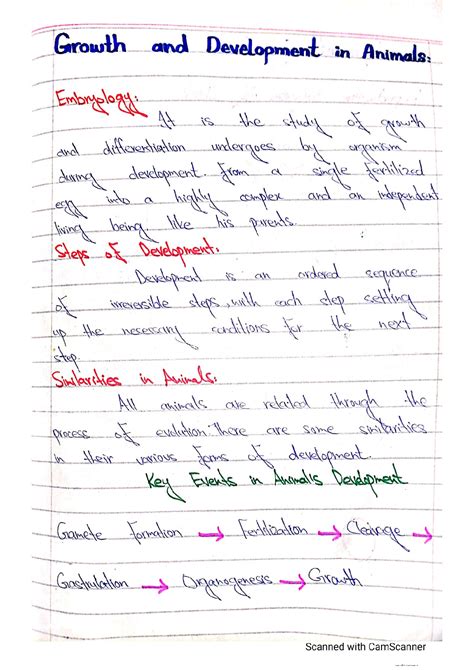 Growth and Development in Animals:
Embryology:
It is the study of growth
and differentiation undergoes by organism
during development from a single fertilized
egg into a highly complex and an independent
living being like his parents.
Steps of Development:
Development is an ordered sequence
of irreversible steps, with each step setting
up the necessary conditions for the next
step.
Similarities in Animals:
All animals are related through the
process of evolution. There are some similarities
in their various forms of development.
Key Events in Animals Development
Gamete Formation → Fertilization → Cleavage →
Gastrulation → Organogenesis → Growth
Scanned with CamScanner